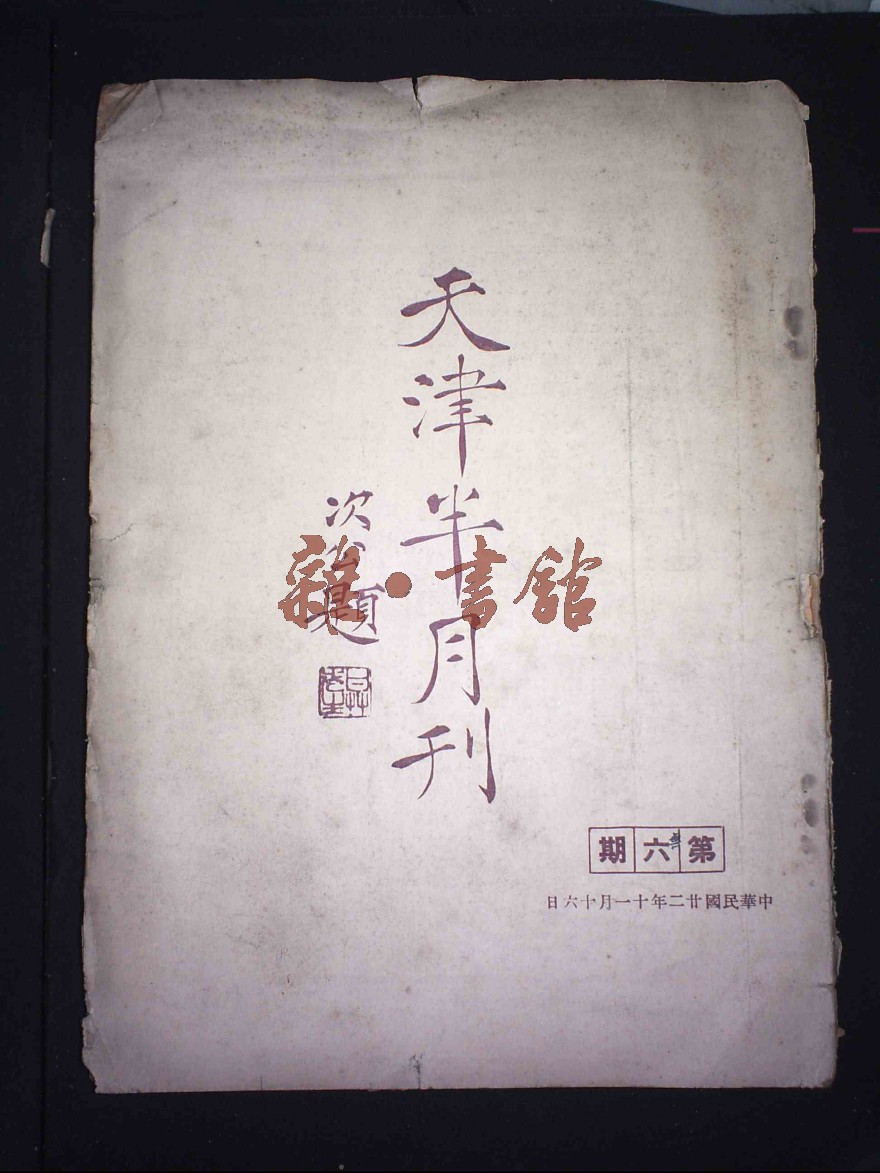 天津半月刊
次公題
雜·書館
第六期
中華民國廿二年十一月十六日